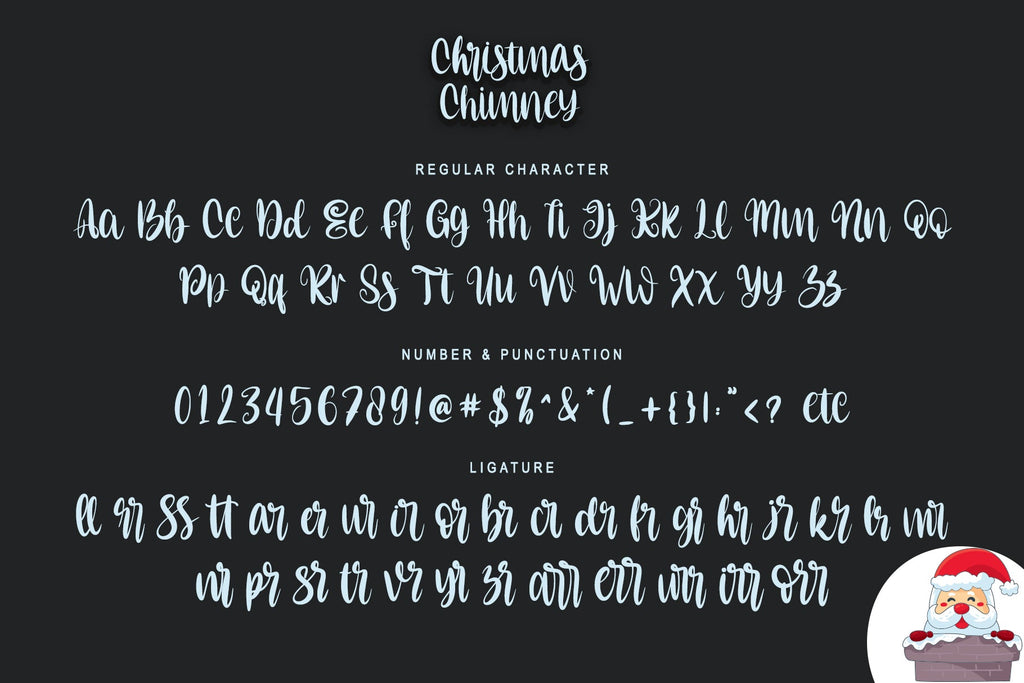 Christmas
Chimney
REGULAR CHARACTER
Aa Bb Cc Dd Ee Ff Gg Hh Ii Jj Kk Ll Mm Nn Oo
Pp Qq Rr Ss Tt Uu Vv Ww Xx Yy Zz
NUMBER & PUNCTUATION
0123456789!@#$%^&*(_+{}|:"<? etc
LIGATURE
ll rr ss tt ar er ur ir or br cr dr fr gr hr jr kr lr mr
nr pr sr tr vr yr zr arr err urr irr orr